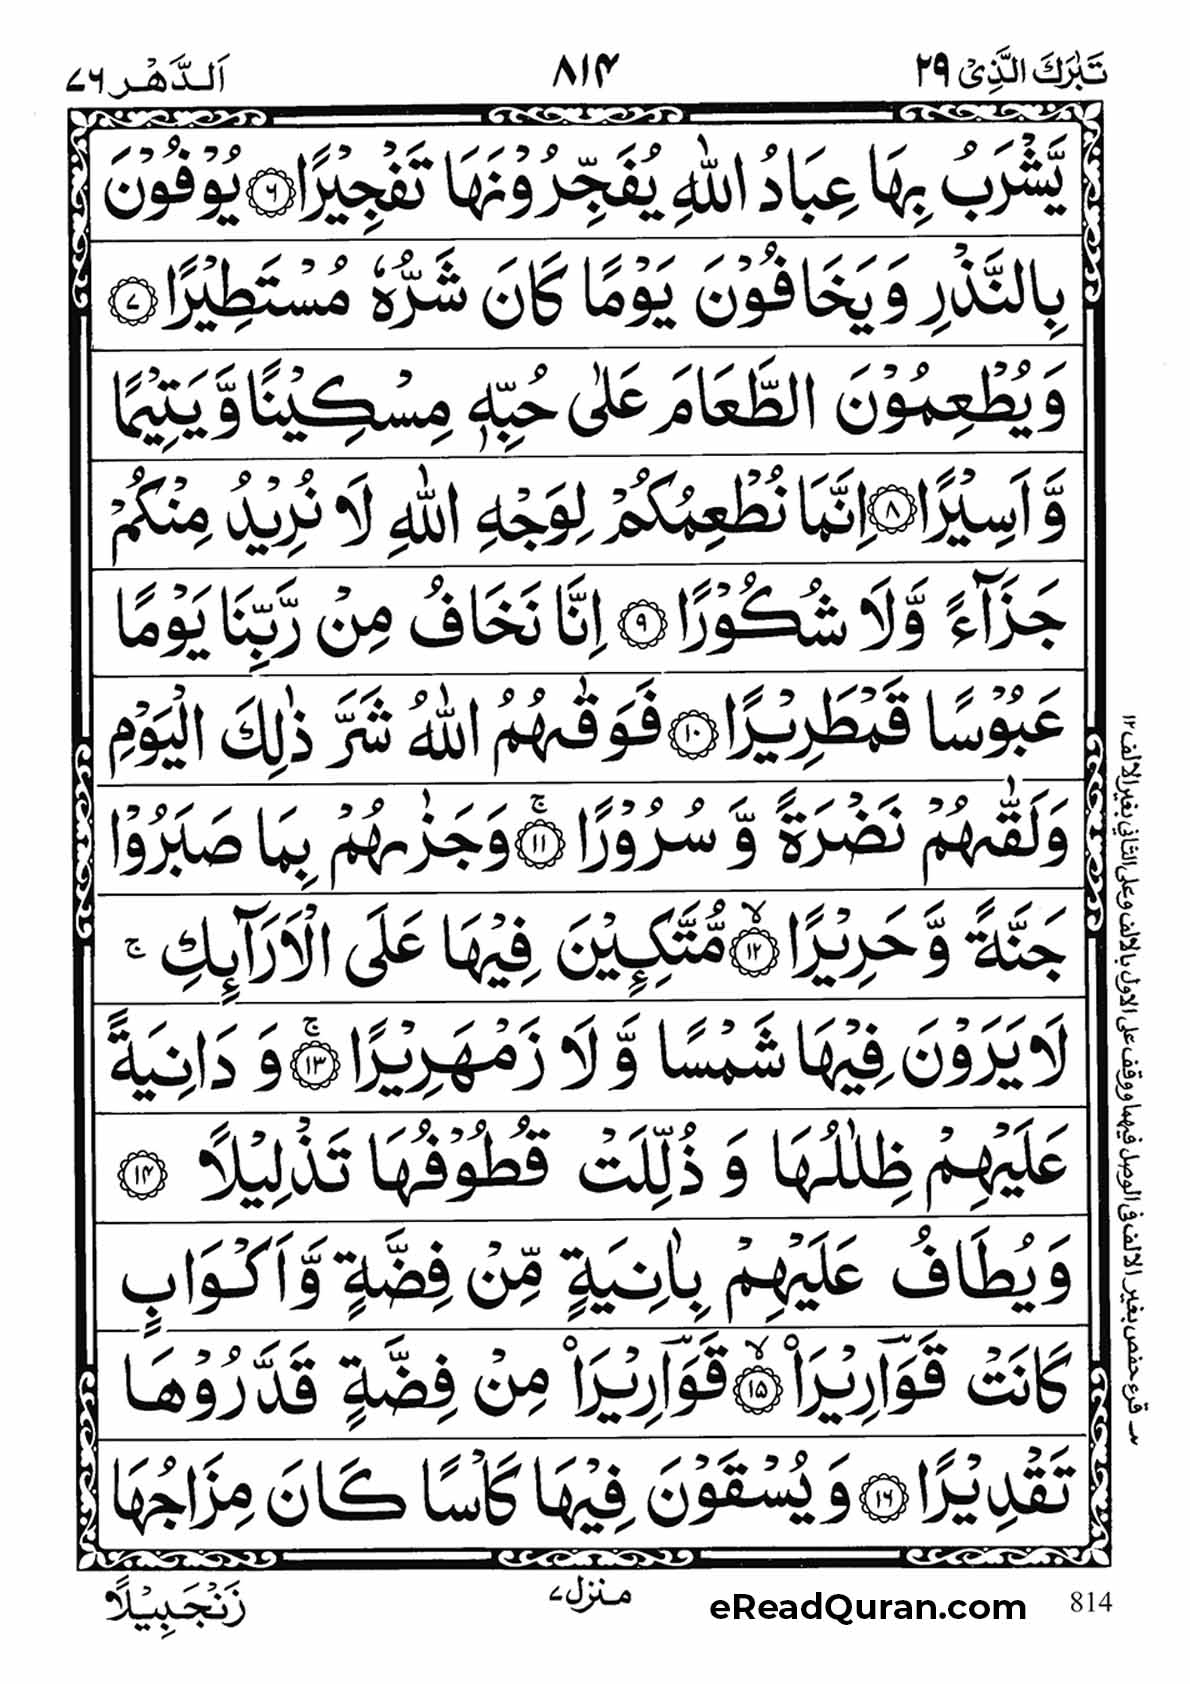 تَبٰرَكَ الَّذِیْ ۲۹ ۸۱۴ اَلدَّهْر ۷۶
یَّشْرَبُ بِهَا عِبَادُ اللّٰهِ یُفَجِّرُوْنَهَا تَفْجِیْرًا ﴿۶﴾ یُوْفُوْنَ
بِالنَّذْرِ وَیَخَافُوْنَ یَوْمًا كَانَ شَرُّهٗ مُسْتَطِیْرًا ﴿۷﴾
وَیُطْعِمُوْنَ الطَّعَامَ عَلٰی حُبِّهٖ مِسْكِیْنًا وَّیَتِیْمًا
وَّاَسِیْرًا ﴿۸﴾ اِنَّمَا نُطْعِمُكُمْ لِوَجْهِ اللّٰهِ لَا نُرِیْدُ مِنْكُمْ
جَزَآءً وَّلَا شُكُوْرًا ﴿۹﴾ اِنَّا نَخَافُ مِنْ رَّبِّنَا یَوْمًا
عَبُوْسًا قَمْطَرِیْرًا ﴿۱۰﴾ فَوَقٰىهُمُ اللّٰهُ شَرَّ ذٰلِكَ الْیَوْمِ
وَلَقّٰىهُمْ نَضْرَةً وَّ سُرُوْرًا ۚ﴿۱۱﴾ وَجَزٰىهُمْ بِمَا صَبَرُوْا
جَنَّةً وَّحَرِیْرًا ۙ﴿۱۲﴾ مُّتَّكِـِٕیْنَ فِیْهَا عَلَی الْاَرَآىِٕكِ ۚ
لَا یَرَوْنَ فِیْهَا شَمْسًا وَّلَا زَمْهَرِیْرًا ۚ﴿۱۳﴾ وَ دَانِیَةً
عَلَیْهِمْ ظِلٰلُهَا وَ ذُلِّلَتْ قُطُوْفُهَا تَذْلِیْلًا ﴿۱۴﴾
وَیُطَافُ عَلَیْهِمْ بِاٰنِیَةٍ مِّنْ فِضَّةٍ وَّاَكْوَابٍ
كَانَتْ قَوَؔارِیْرَا۠ ۙ﴿۱۵﴾ قَوَؔارِیْرَا۠ مِنْ فِضَّةٍ قَدَّرُوْهَا
تَقْدِیْرًا ﴿۱۶﴾ وَیُسْقَوْنَ فِیْهَا كَاْسًا كَانَ مِزَاجُهَا
زَنْجَبِیْلًا منزل۷ eReadQuran.com 814
قرء حفص بغیر الالف فی الوصل فیهما ووقف علی الاول بالالف وعلی الثانی بغیر الالف ۱۲